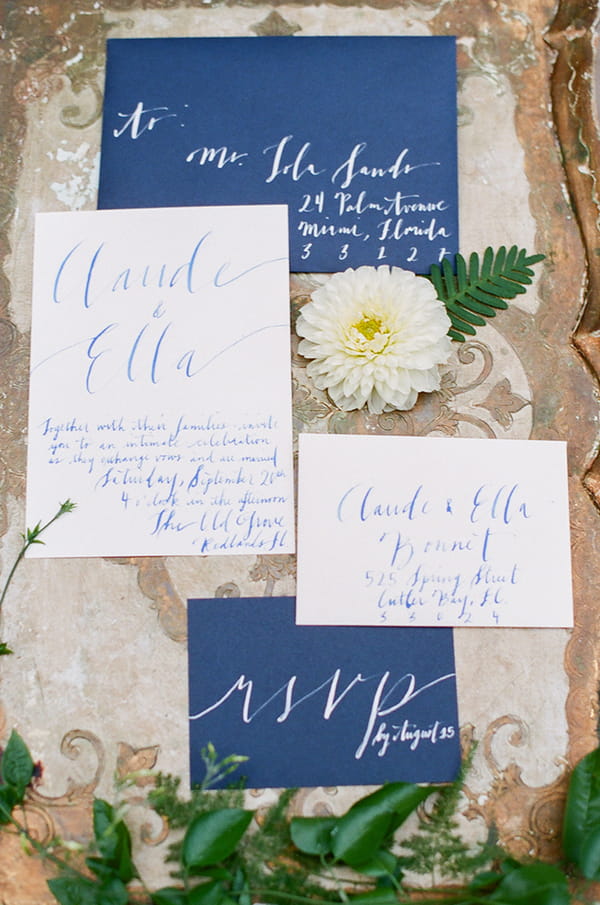 to:
Mr. Lola Sands
24 Palm Avenue
Miami, Florida
3 3 1 2 7
Claude
&
Ella
Together with their families invite
you to an intimate celebration
as they exchange vows and are married
Saturday, September 20th
4 o'clock in the afternoon
The Old Grove
Redlands Fl
Claude & Ella
Bonnet
525 Spring Street
Cutler Bay, FL.
3 3 0 2 4
rsvp
by August 25